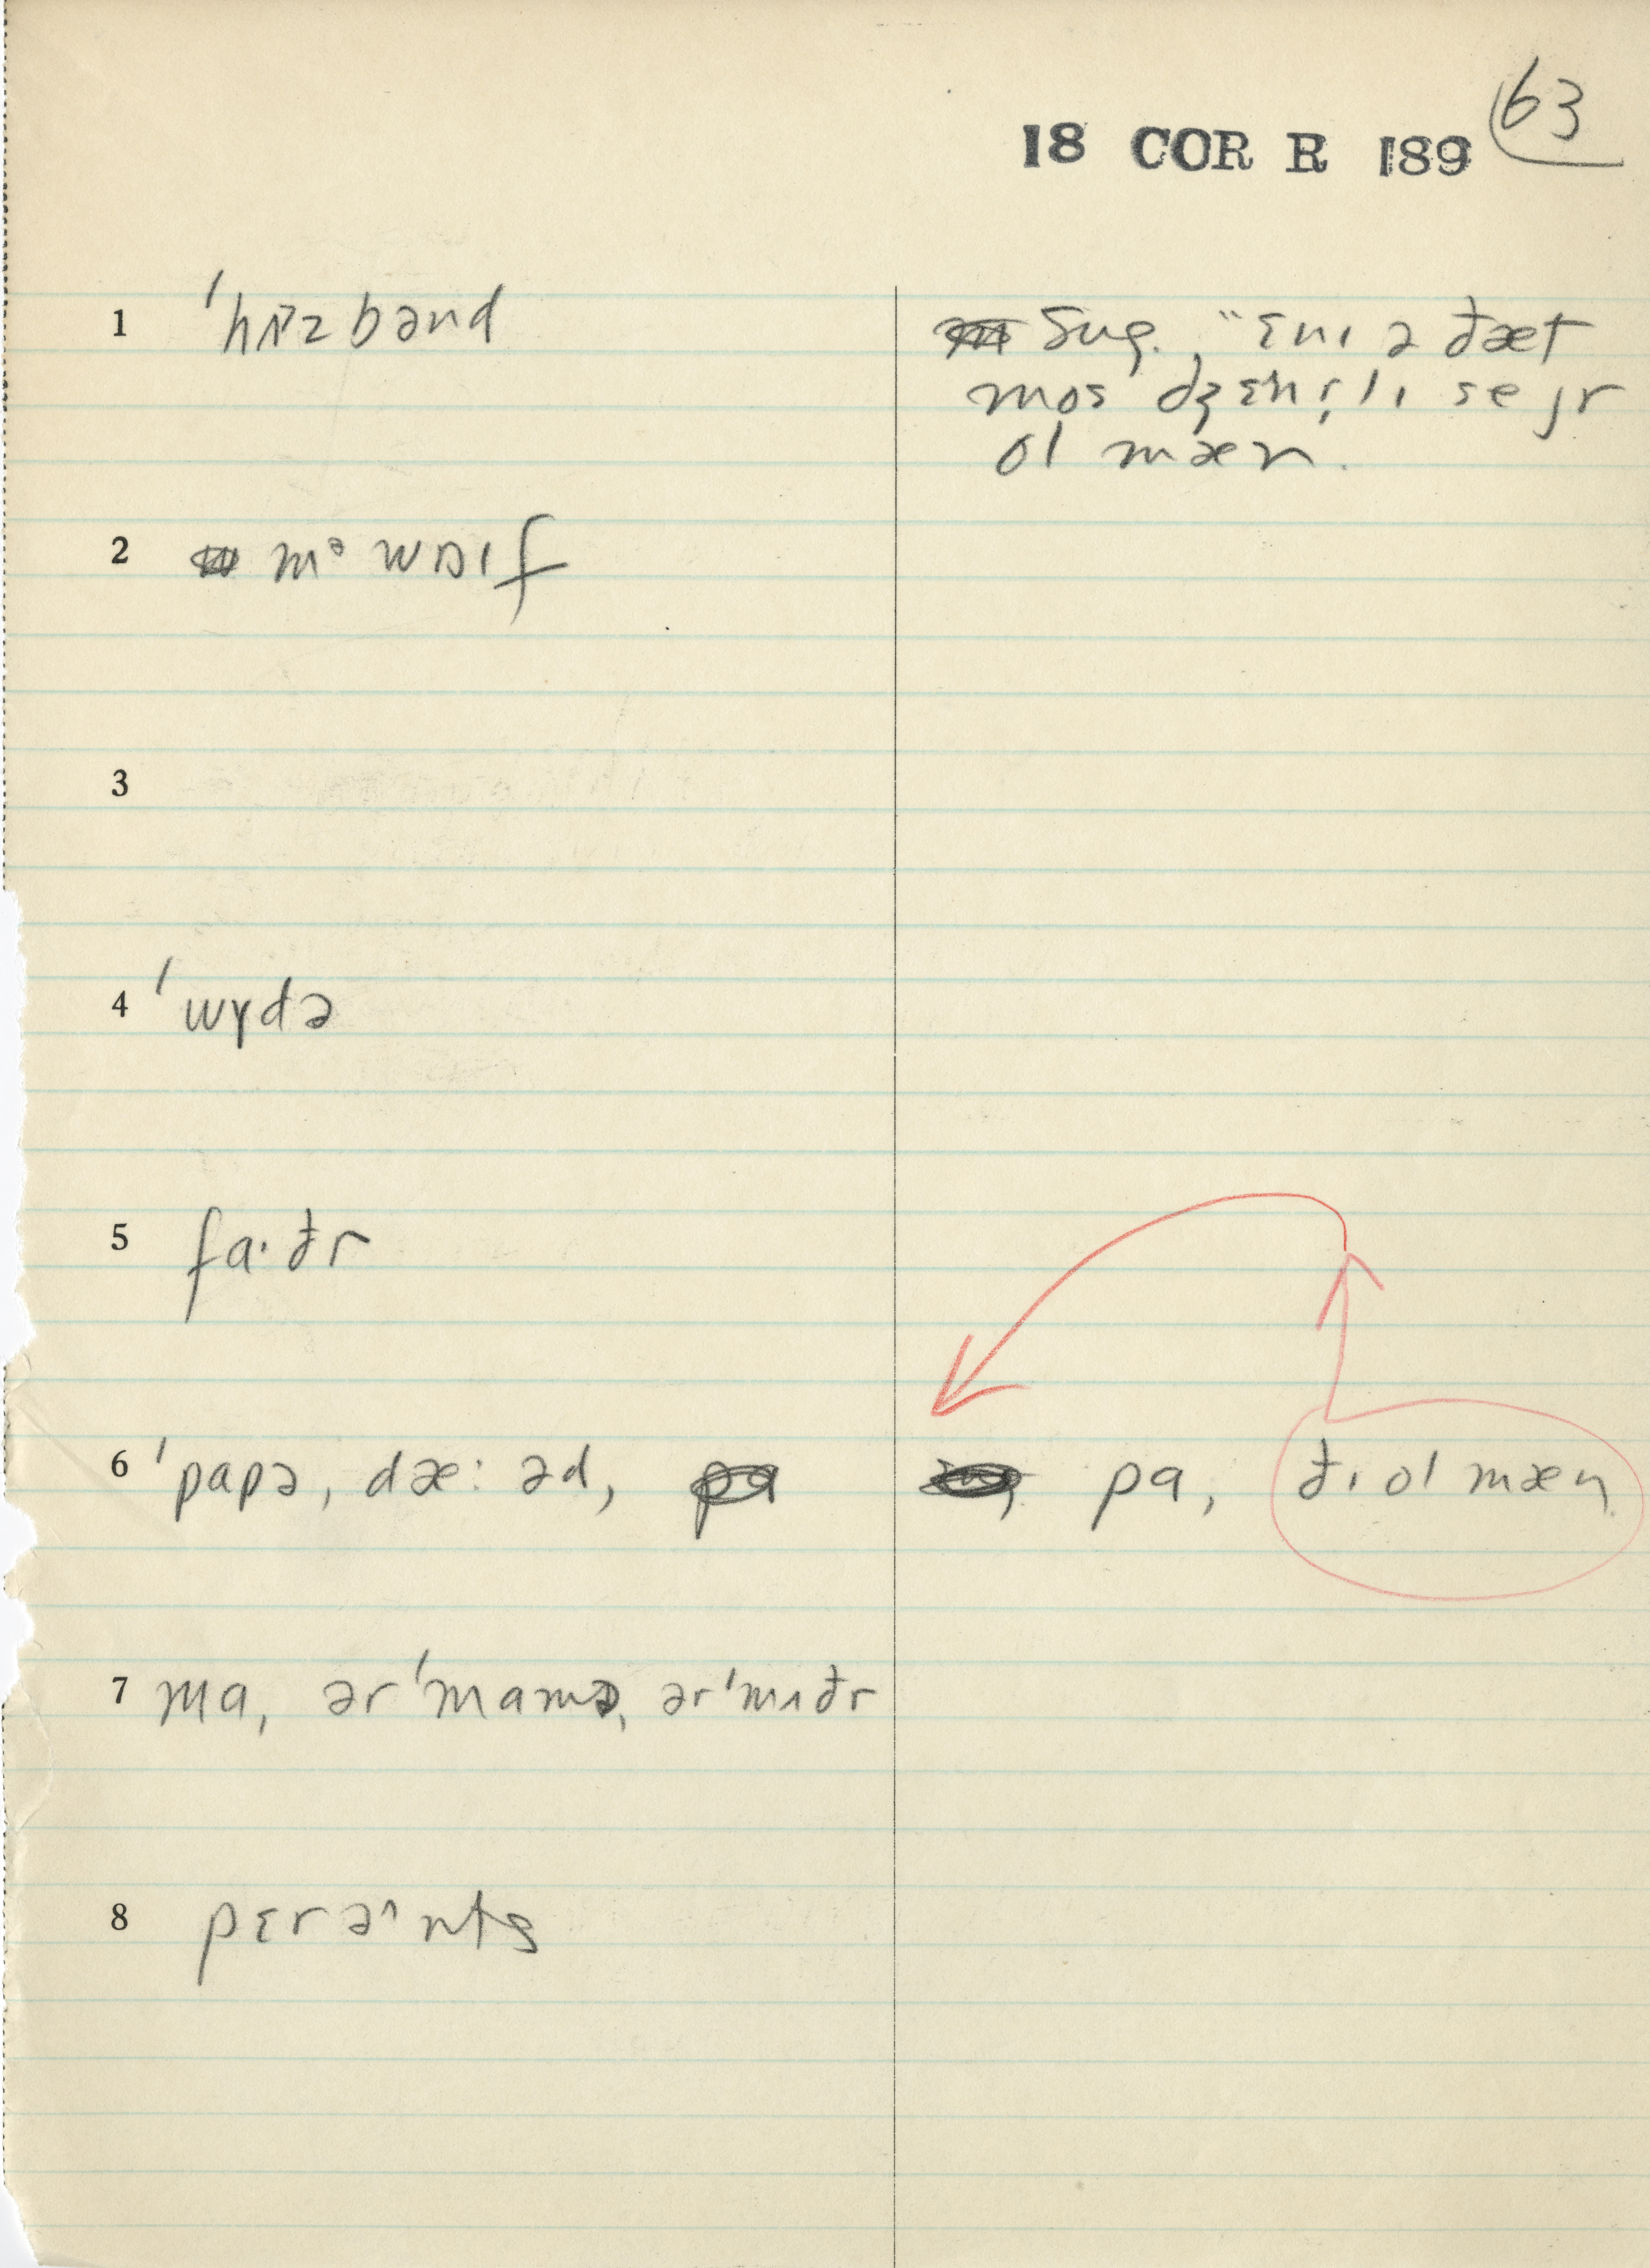 63
18 COR R 189
1 ˈhʌzbənd
Sug., "ɛnɪ ə ðæt
mos dʒɛnrˌlɪ se jr
ol mæn.
2 mᵊ wɒɪf
3
4 ˈwɤdə
5 fa·ðr
6 ˈpapə, dæ:əd, pa, ðɪ ol mæn
7 ma, ərˈmamə, ərˈmʌðr
8 pɛrəˆnts